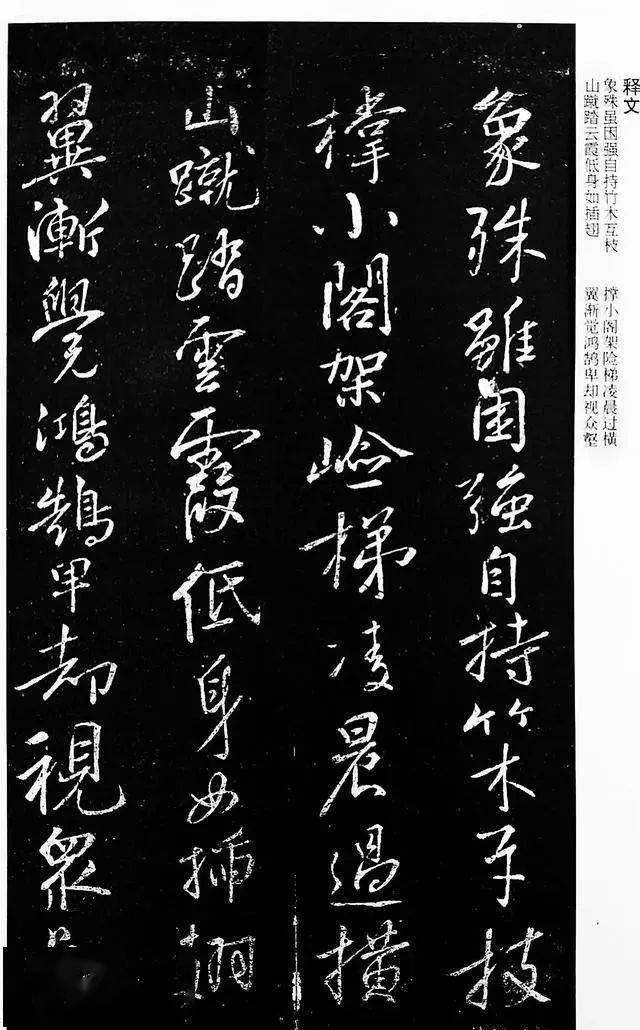 释文
象殊虽因强自持竹木互枝
山蹴踏云霞低身如插翅
撑小阁架险梯凌晨过横
翼渐觉鸿鹄卑却视众壑
象殊雖困強自持竹木互枝
撑小閣架嶮梯凌晨過橫
山蹴踏雲霞低身如插翅
翼漸覺鴻鵠卑却視衆